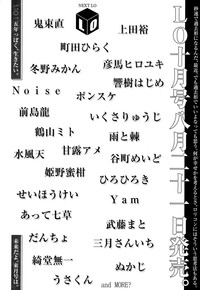 NEXT LO
LO
鬼束直
上田裕
町田ひらく
冬野みかん
彦馬ヒロユキ
Noise
響樹はじめ
ポンスケ
前島龍
いくさりゅうじ
鶴山ミト
雨と棘
水風天
甘露アメ
谷町めいど
姫野蜜柑
ひろひろき
せいほうけい
Yam
あって七草
武藤まと
だんちょ
三月さんいち
綾堂無一
ぬかじ
うさくん
and MORE?
LO十月号八月二十一日発売。